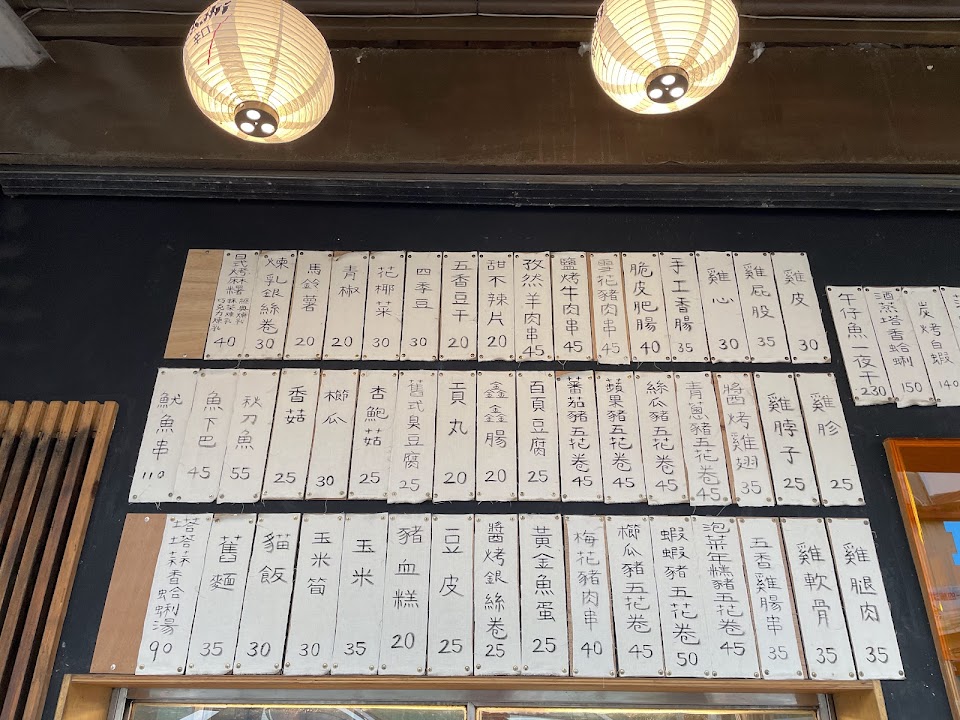 辛口
雞皮 30
雞屁股 35
雞心 30
手工香腸 35
脆皮肥腸 40
雪花豬肉串 45
鹽烤牛肉串 45
孜然羊肉串 45
甜不辣片 20
五香豆干 20
四季豆 30
花椰菜 30
青椒 20
馬鈴薯 20
煉乳銀絲卷 30
日式烤麻糬 40
雞胗 25
雞脖子 25
醬烤雞翅 35
青蔥豬五花卷 45
絲瓜豬五花卷 45
蘋果豬五花卷 45
蕃茄豬五花卷 45
百頁豆腐 25
鑫鑫腸 20
貢丸 20
舊式臭豆腐 25
杏鮑菇 25
櫛瓜 30
香菇 25
秋刀魚 55
魚下巴 45
魷魚串 110
雞腿肉 35
雞軟骨 35
五香雞腸串 35
泡菜年糕豬五花卷 45
蝦蝦豬五花卷 50
櫛瓜豬五花卷 45
梅花豬肉串 40
黃金魚蛋 25
醬烤銀絲卷 25
豆皮 25
豬血糕 20
玉米 35
玉米筍 30
貓飯 30
舊麵 35
塔塔蒜香蛤蜊湯 90
炭烤白蝦 140
酒蒸塔香蛤蜊 150
午仔魚一夜干 230